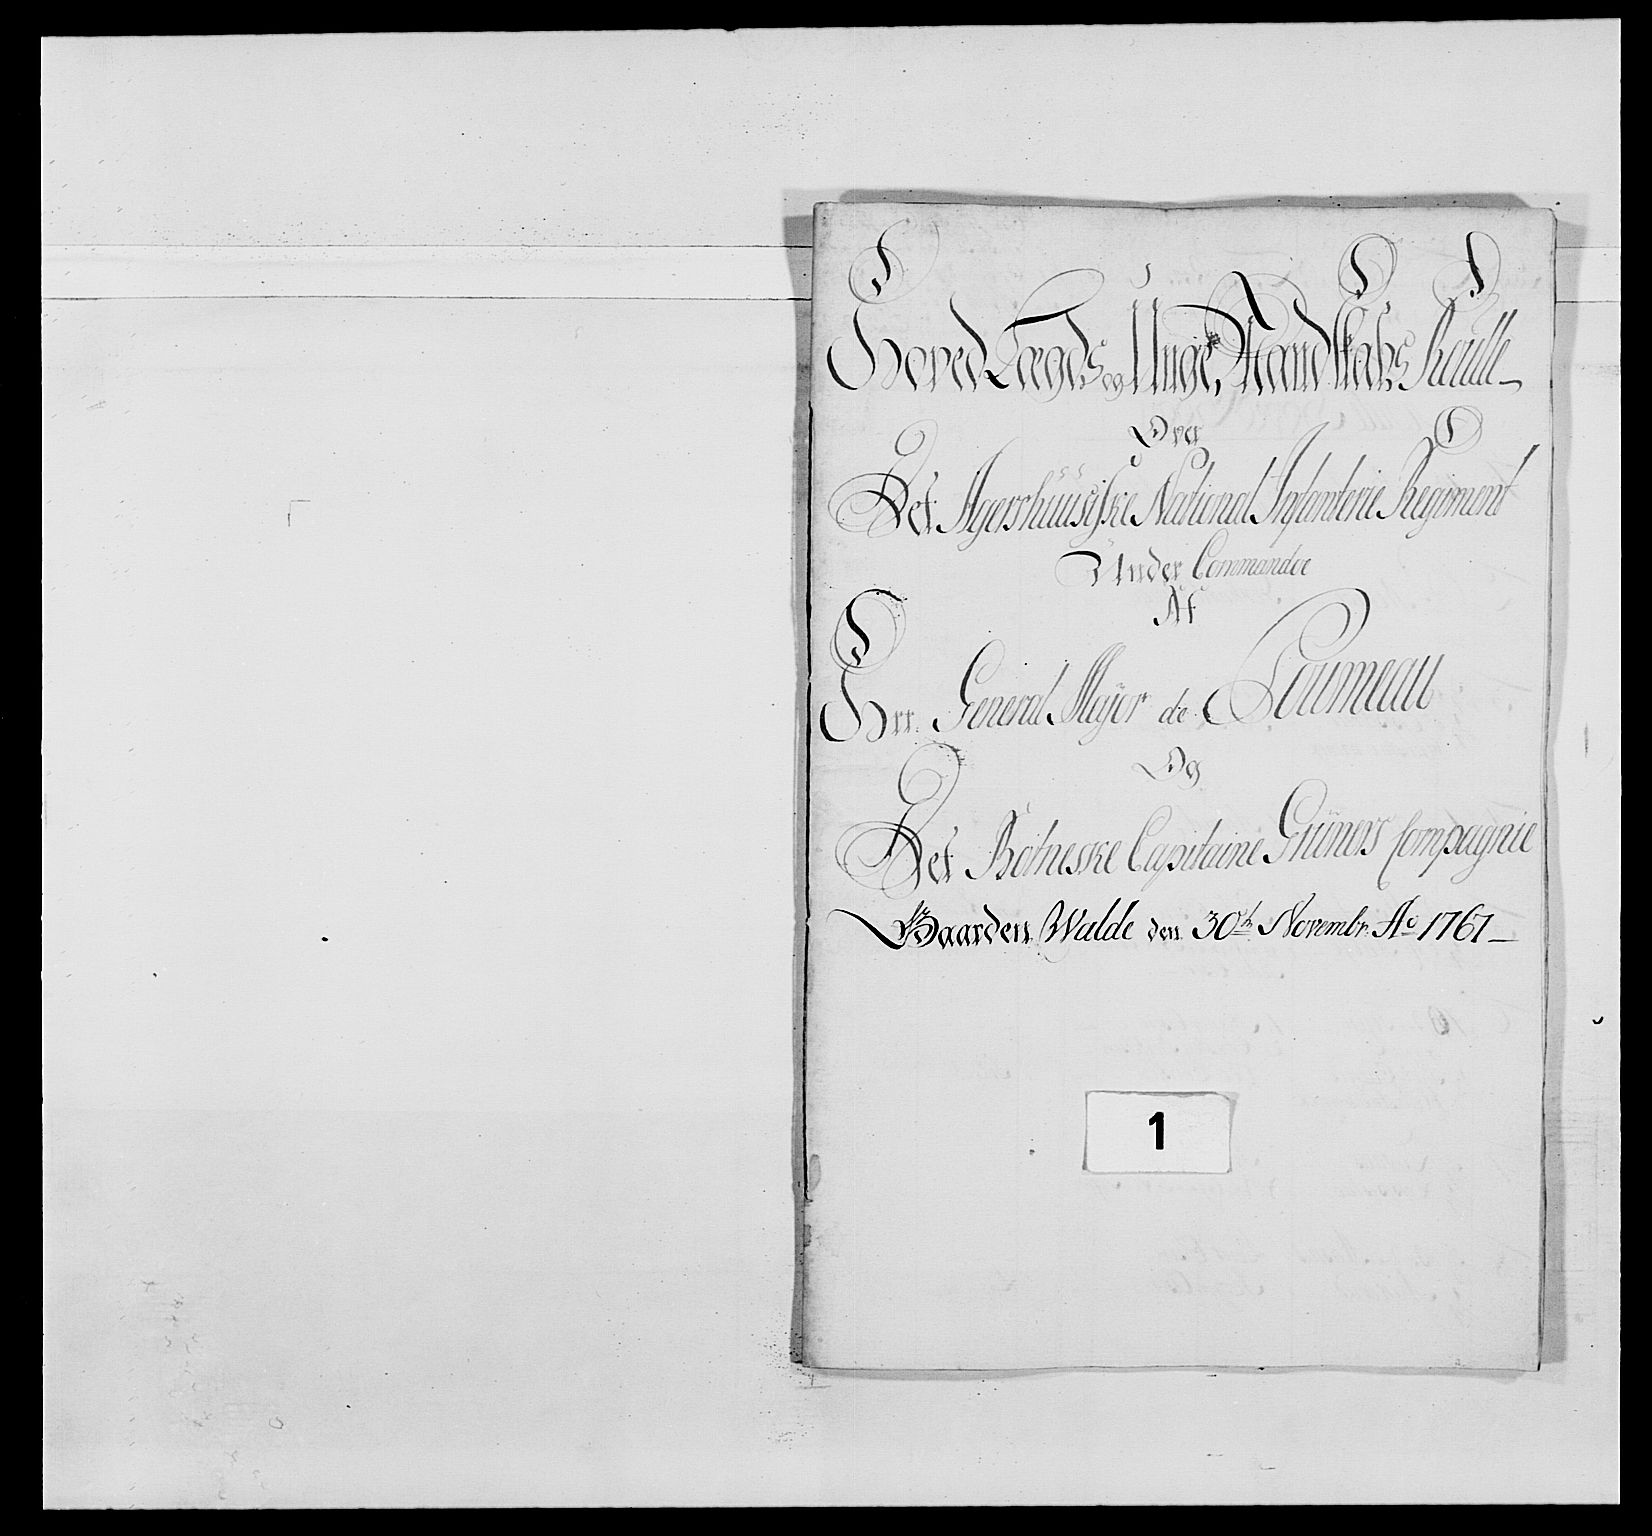 Hoved Lægds og Unge Mandskabs Rulle
Over
Det Agerhuusiske National Infanterie Regiment
Under Commandoe
Af
Hrr. General Major de Loumeau
Og
Det Botneske Capitaine Grüners Compagnie
Gaarden Walde den 30th Novembr. Ao 1767
1